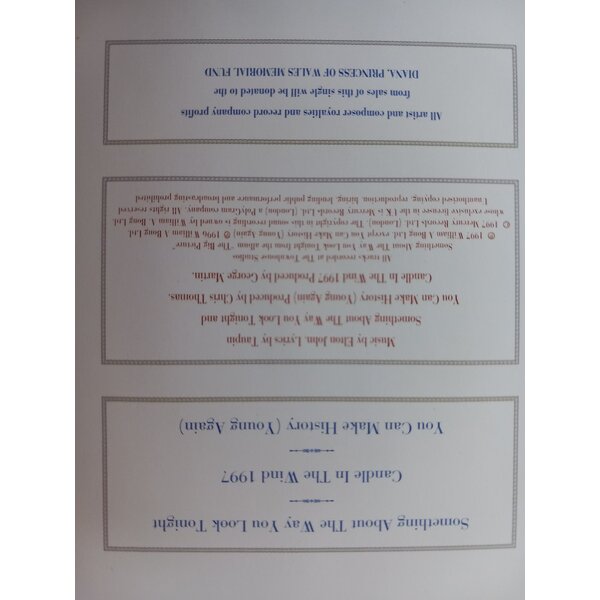 Something About The Way You Look Tonight
Candle In The Wind 1997
You Can Make History (Young Again)
Music by Elton John, Lyrics by Taupin
Something About The Way You Look Tonight and
You Can Make History (Young Again) Produced by Chris Thomas.
Candle In The Wind 1997 Produced by George Martin.
All tracks recorded at The Townhouse Studios
Something About The Way You Look Tonight from the album "The Big Picture"
℗ 1997 William A Bong Ltd. except You Can Make History (Young Again) ℗ 1996 William A Bong Ltd.
© 1997 Mercury Records Ltd. (London). The copyright in this sound recording is owned by William A Bong Ltd.
whose exclusive licensee in the UK is Mercury Records Ltd. (London) a PolyGram company. All rights reserved
Unauthorised copying, reproduction, hiring, lending public performance and broadcasting prohibited
All artist and composer royalties and record company profits
from sales of this single will be donated to the
DIANA, PRINCESS OF WALES MEMORIAL FUND